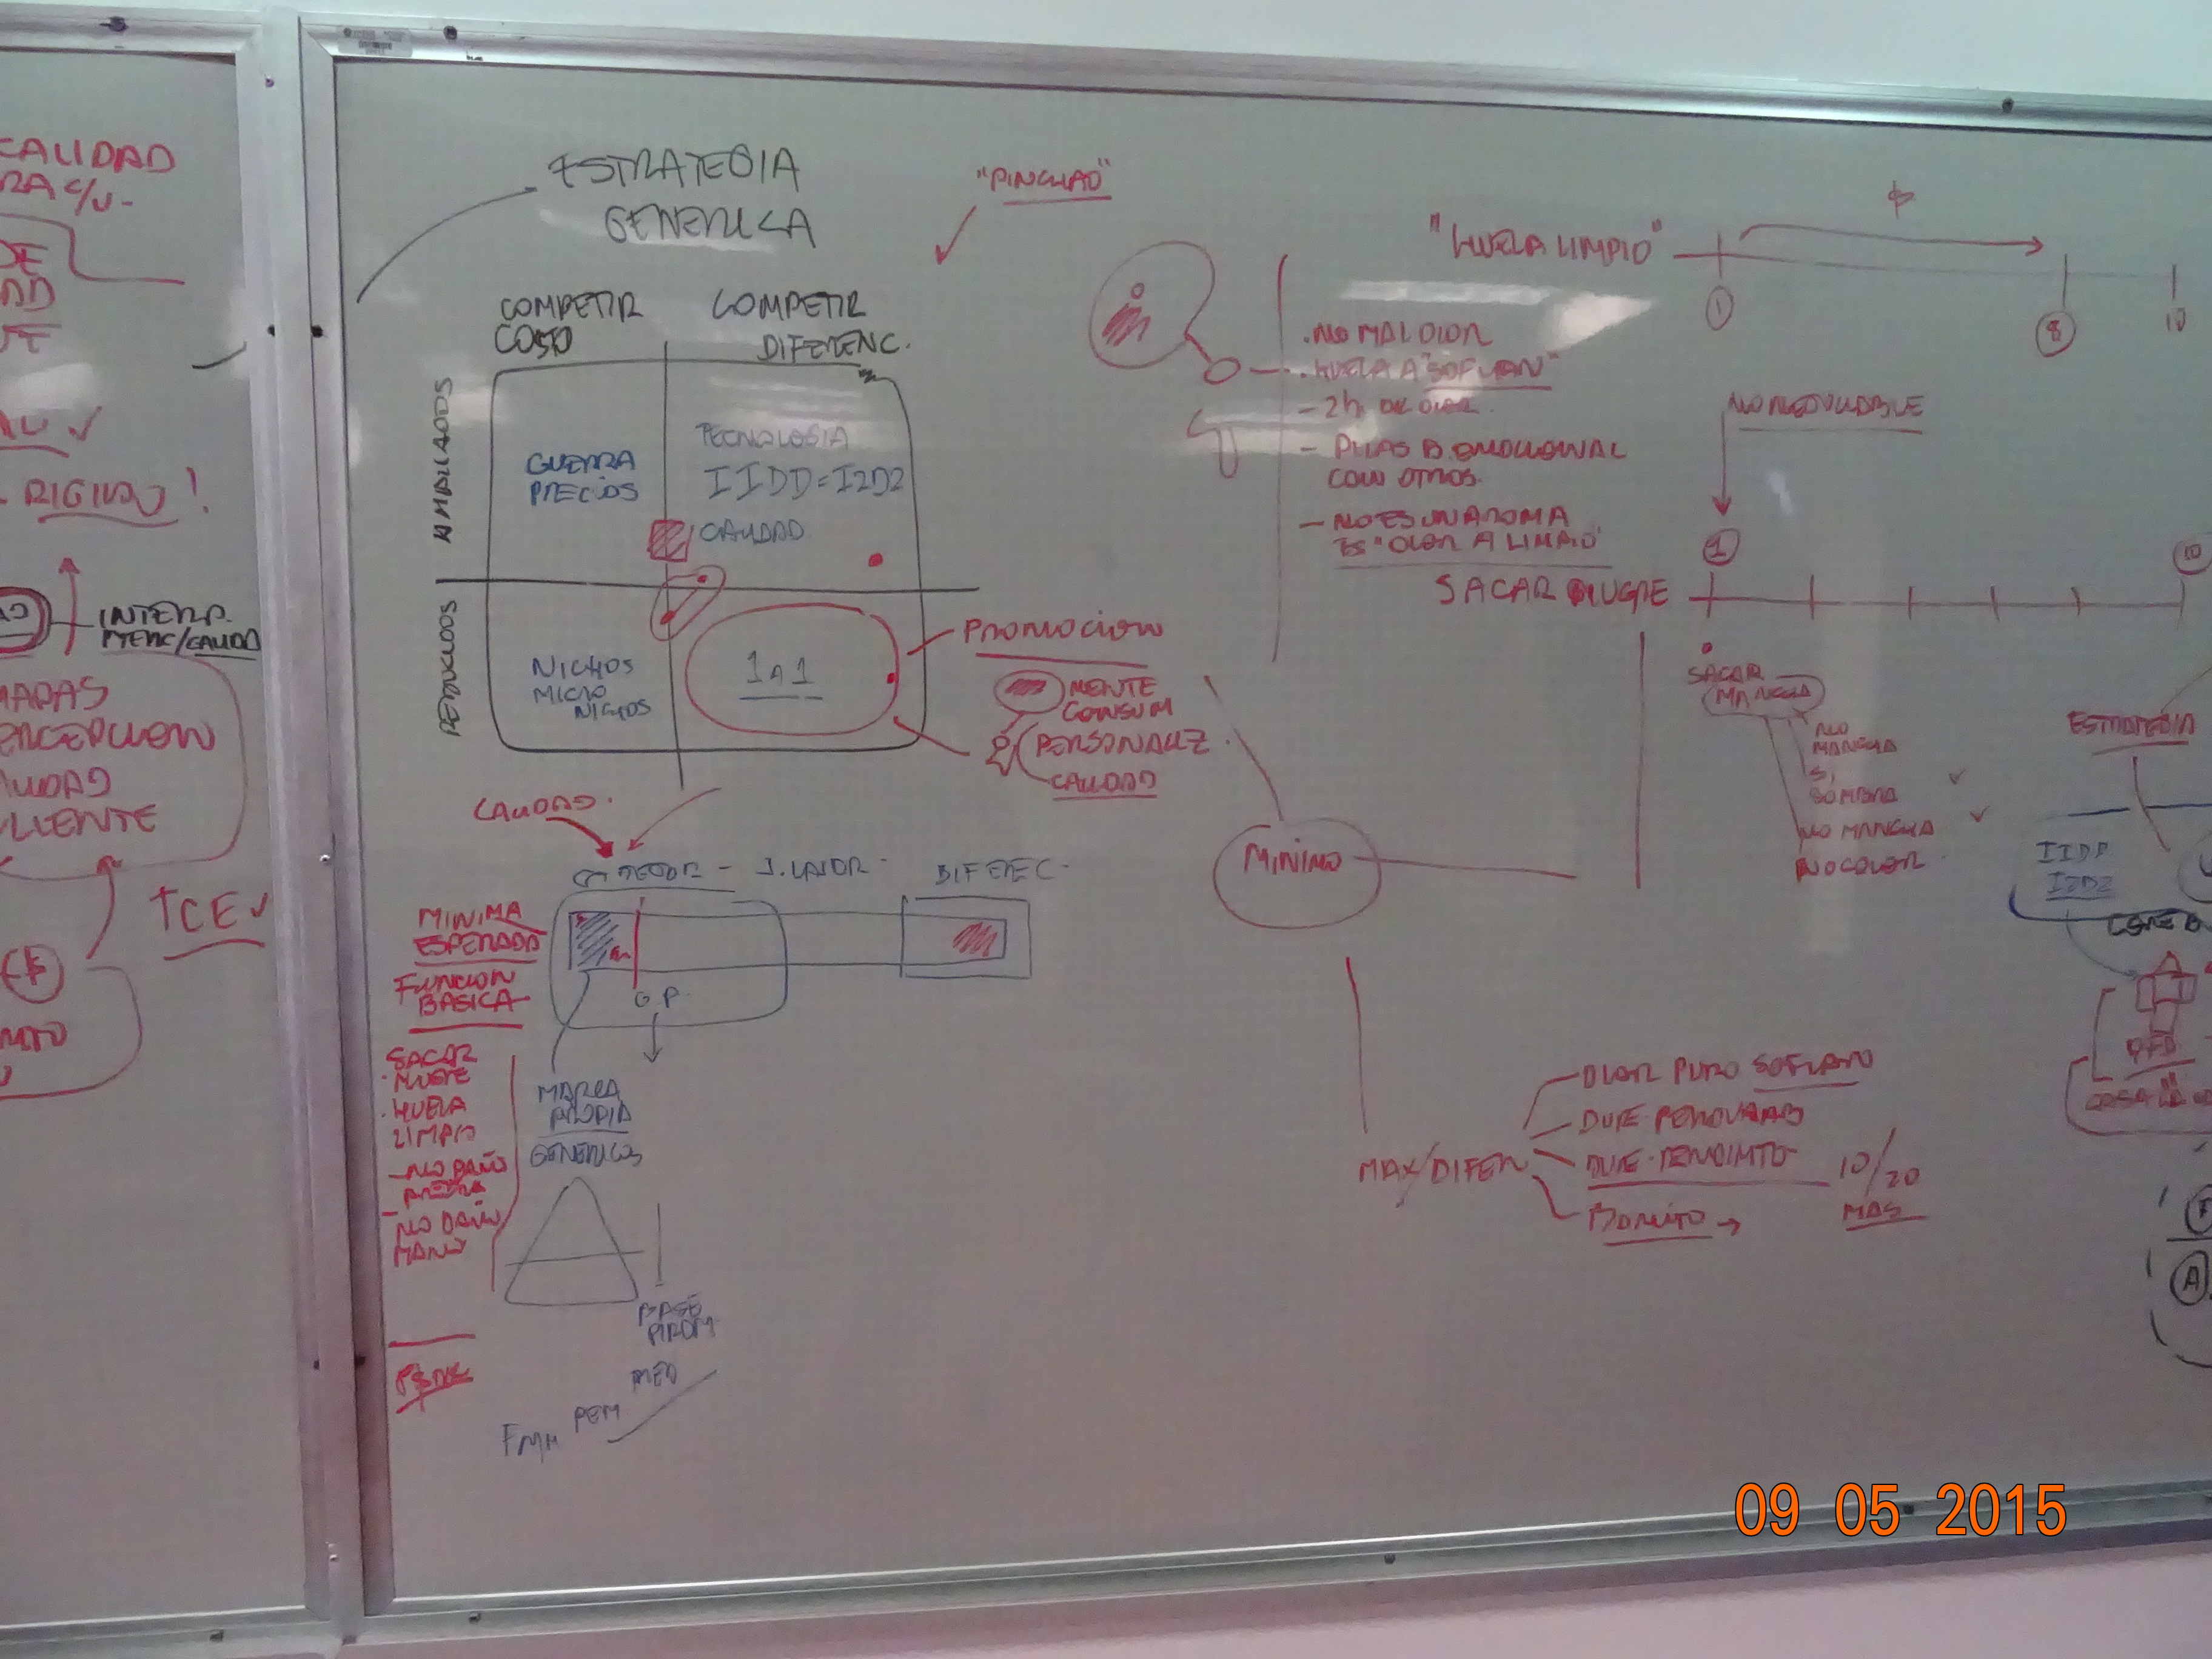 CALIDAD
RA c/u-
DE
RIGIDO!
INTERP.
MAPAS
CALIDAD
CLIENTE
↑CE✓
ESTRATEGIA
GENERICA
"PINCHAO"
COMPETIR
COSTO
COMPETIR
DIFERENC.
AMPLIADOS
REDUCIDOS
GUERRA
PRECIOS
TECNOLOGIA
IIDD=I2D2
CALIDAD
NICHOS
MICRO
NICHOS
1 A 1
PROMOCION
MENTE
CONSUM
PERSONALIZ.
CALIDAD
CALIDAD.
J. VALOR-
DIFEREC-
MINIMA
ESPERADA
FUNCION
BASICA
G.P.
SACAR
MUGRE
HUELA
LIMPIO
-NO DAÑO
-NO DAÑO
MANO
MARCA
PROPIA
GENERICOS
BASE
PIRAM
MED
FMM
"HUELA LIMPIO"
$
1
8
10
.NO MAL OLOR
.HUELA A "SOFLAN"
- 2h. DE OLOR.
- PILAS B. EMOCIONAL
CON OTROS.
-NO ES UN AROMA
ES "OLOR A LIMPIO"
NO NEGOCIABLE
1
10
SACAR MUGRE
SACAR
MANCHA
NO
MANCHA
SI
SOMBRA ✓
NO MANCHA ✓
NO COLOR.
ESTRATEGIA
IIDD
I2D2
CORE B
QFD
MINIMO
MAX/DIFER
OLOR PURO SOFLAN
DURE PERDURAB
DURE-RENDIMTO 10/20
MAS
BONITO →
A
09 05 2015